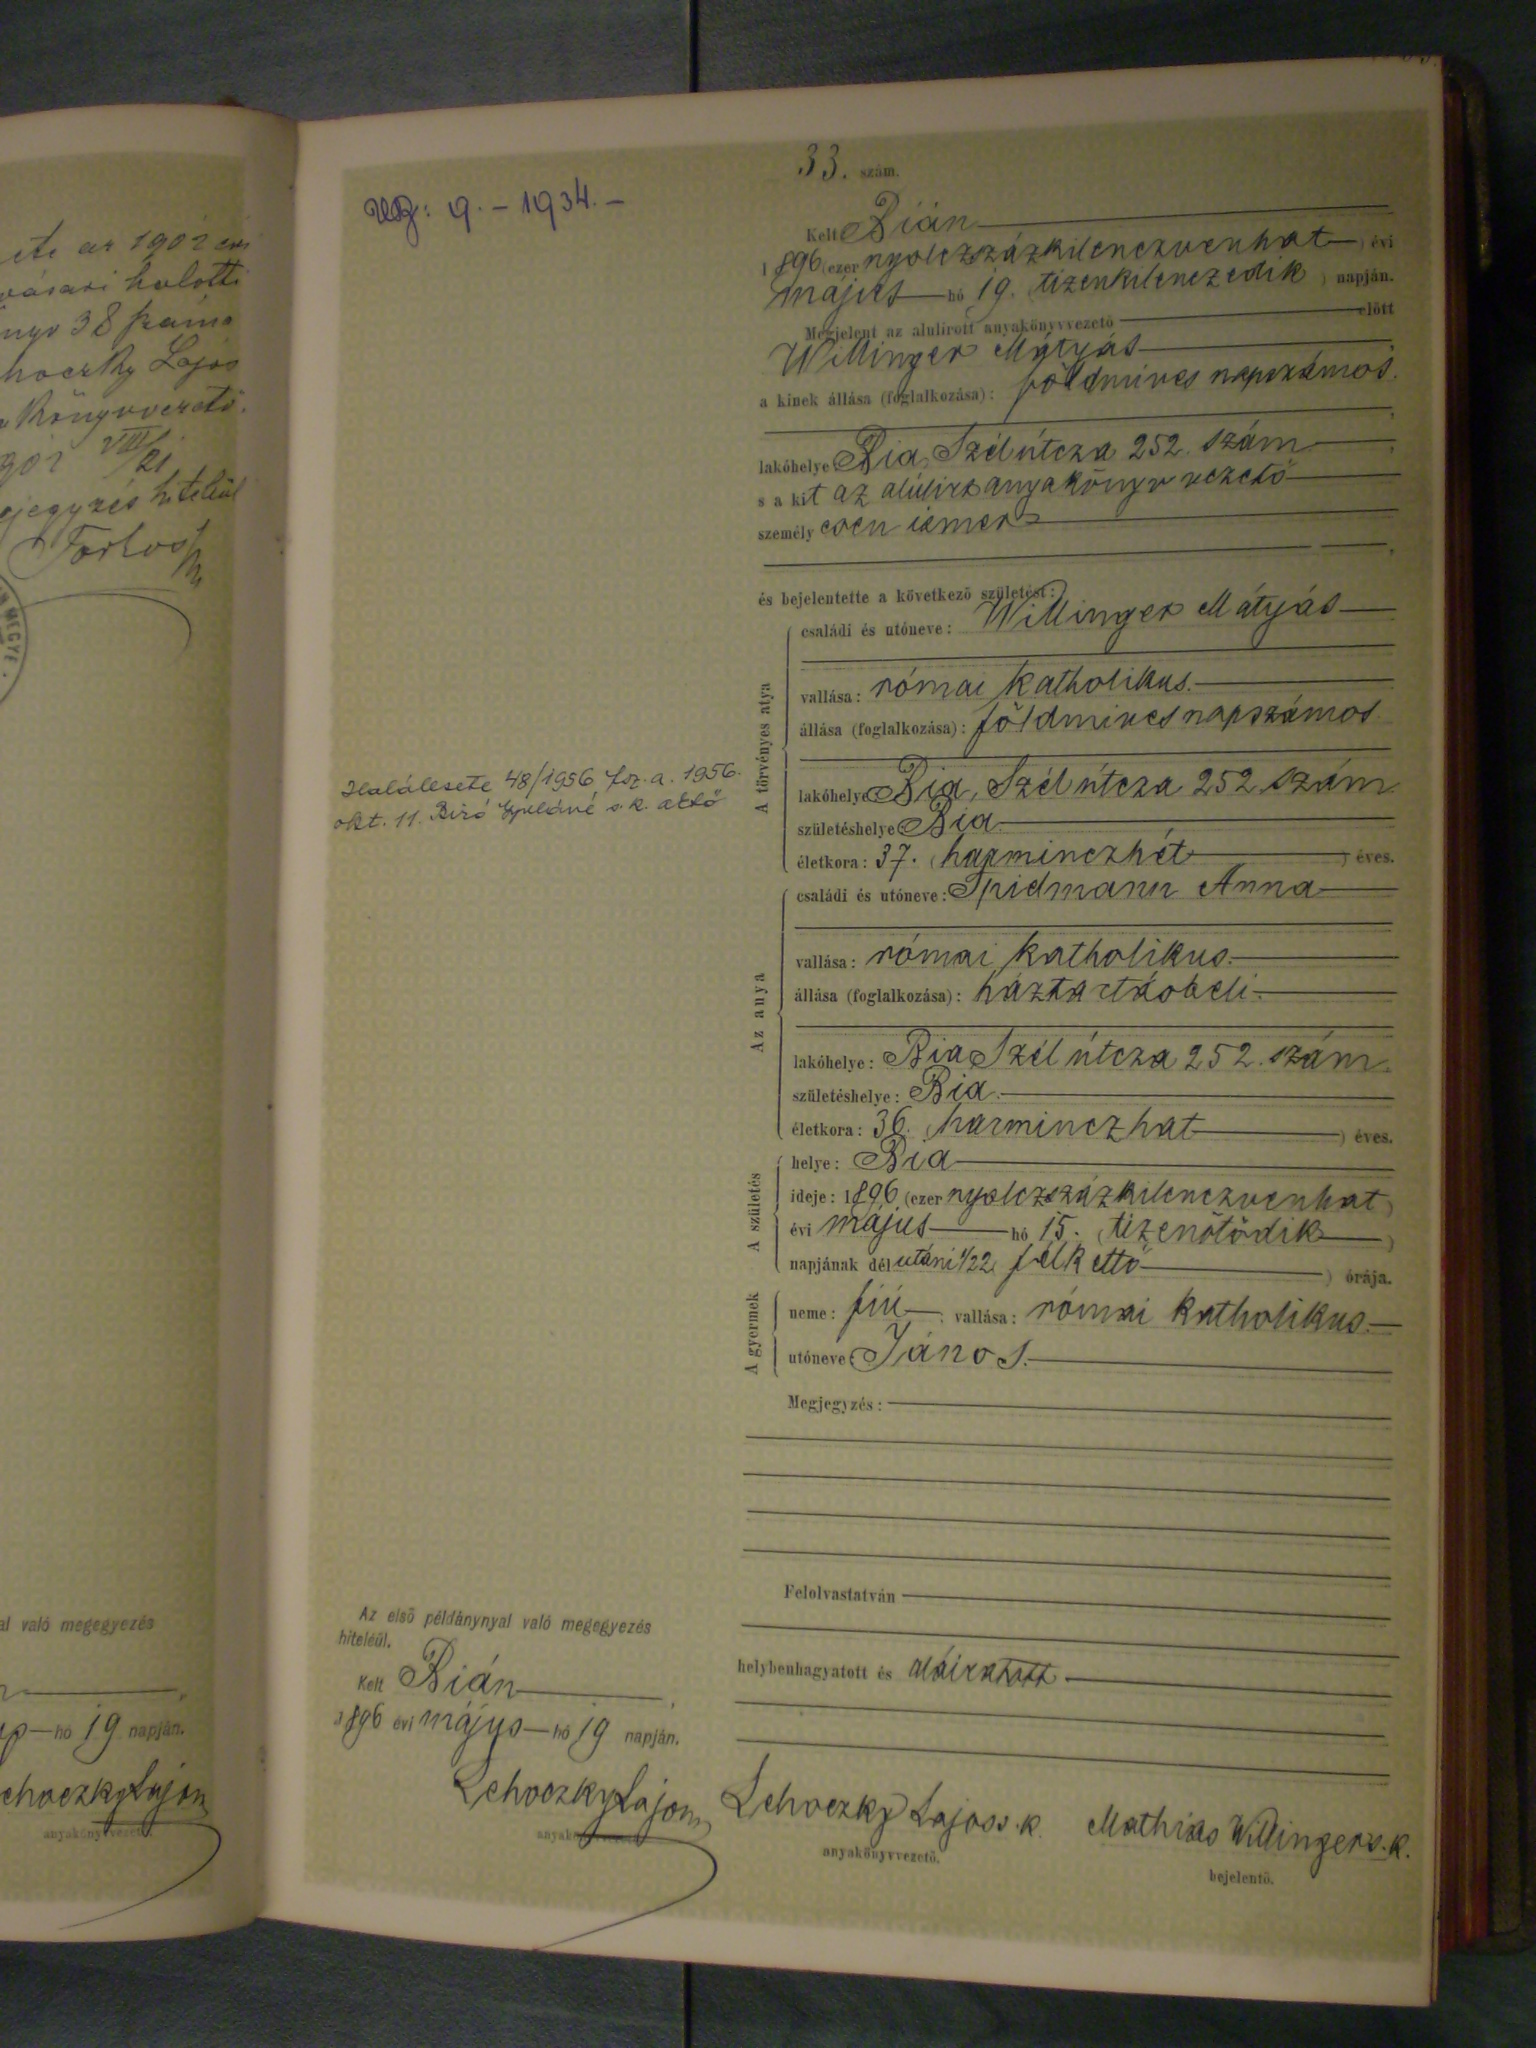 ete az 1901 évi
vásári halotti
38 száma
hoczky Lajos
Könyvvezető.
VIII/21
hiteléül
Forhos
MEGYE
al való megegyezés
hó 19 napján.
ehoczky Lajos
anyakönyvvezető.
UZ: 9. - 1934. -
Halálesete 48/1956 fsz. a. 1956.
okt. 11. Biró Gyuláné s.k. akf
Az első példánynyal való megegyezés
hiteléül.
Kelt Bián
1896 évi május hó 19 napján.
Lehoczky Lajos
anyakönyvvezető.
33. szám.
Kelt Bián
1896 (ezer nyolczszázkilenczvenhat) évi
május hó 19. (tizenkilenczedik) napján.
Megjelent az alulirott anyakönyvvezető előtt
Willinger Mátyás
a kinek állása (foglalkozása): földmives napszámos.
lakóhelye Bia, Szél útcza 252. szám
s a kit az alúlirt anyakönyv vezető
személyesen ismer
és bejelentette a következő születést:
A törvényes atya
családi és utóneve: Willinger Mátyás
vallása: római katholikus.
állása (foglalkozása): földmives napszámos
lakóhelye Bia, Szél útcza 252 szám
születéshelye Bia
életkora: 37. (harminczhét) éves.
Az anya
családi és utóneve: Spidmann Anna
vallása: római katholikus.
állása (foglalkozása): háztartásbeli.
lakóhelye: Bia Szél útcza 252. szám.
születéshelye: Bia.
életkora: 36. (harminczhat) éves.
A születés
helye: Bia
ideje: 1896 (ezer nyolczszázkilenczvenhat)
évi május hó 15. (tizenötödik)
napjának délutáni 1/2 2 (fél kettő) órája.
A gyermek
neme: fiú; vallása: római katholikus.
utóneve: János.
Megjegyzés:
Felolvastatván
helybenhagyatott és aláiratott
Lehoczky Lajos s.k.
anyakönyvvezető.
Mathias Willinger s.k.
bejelentő.